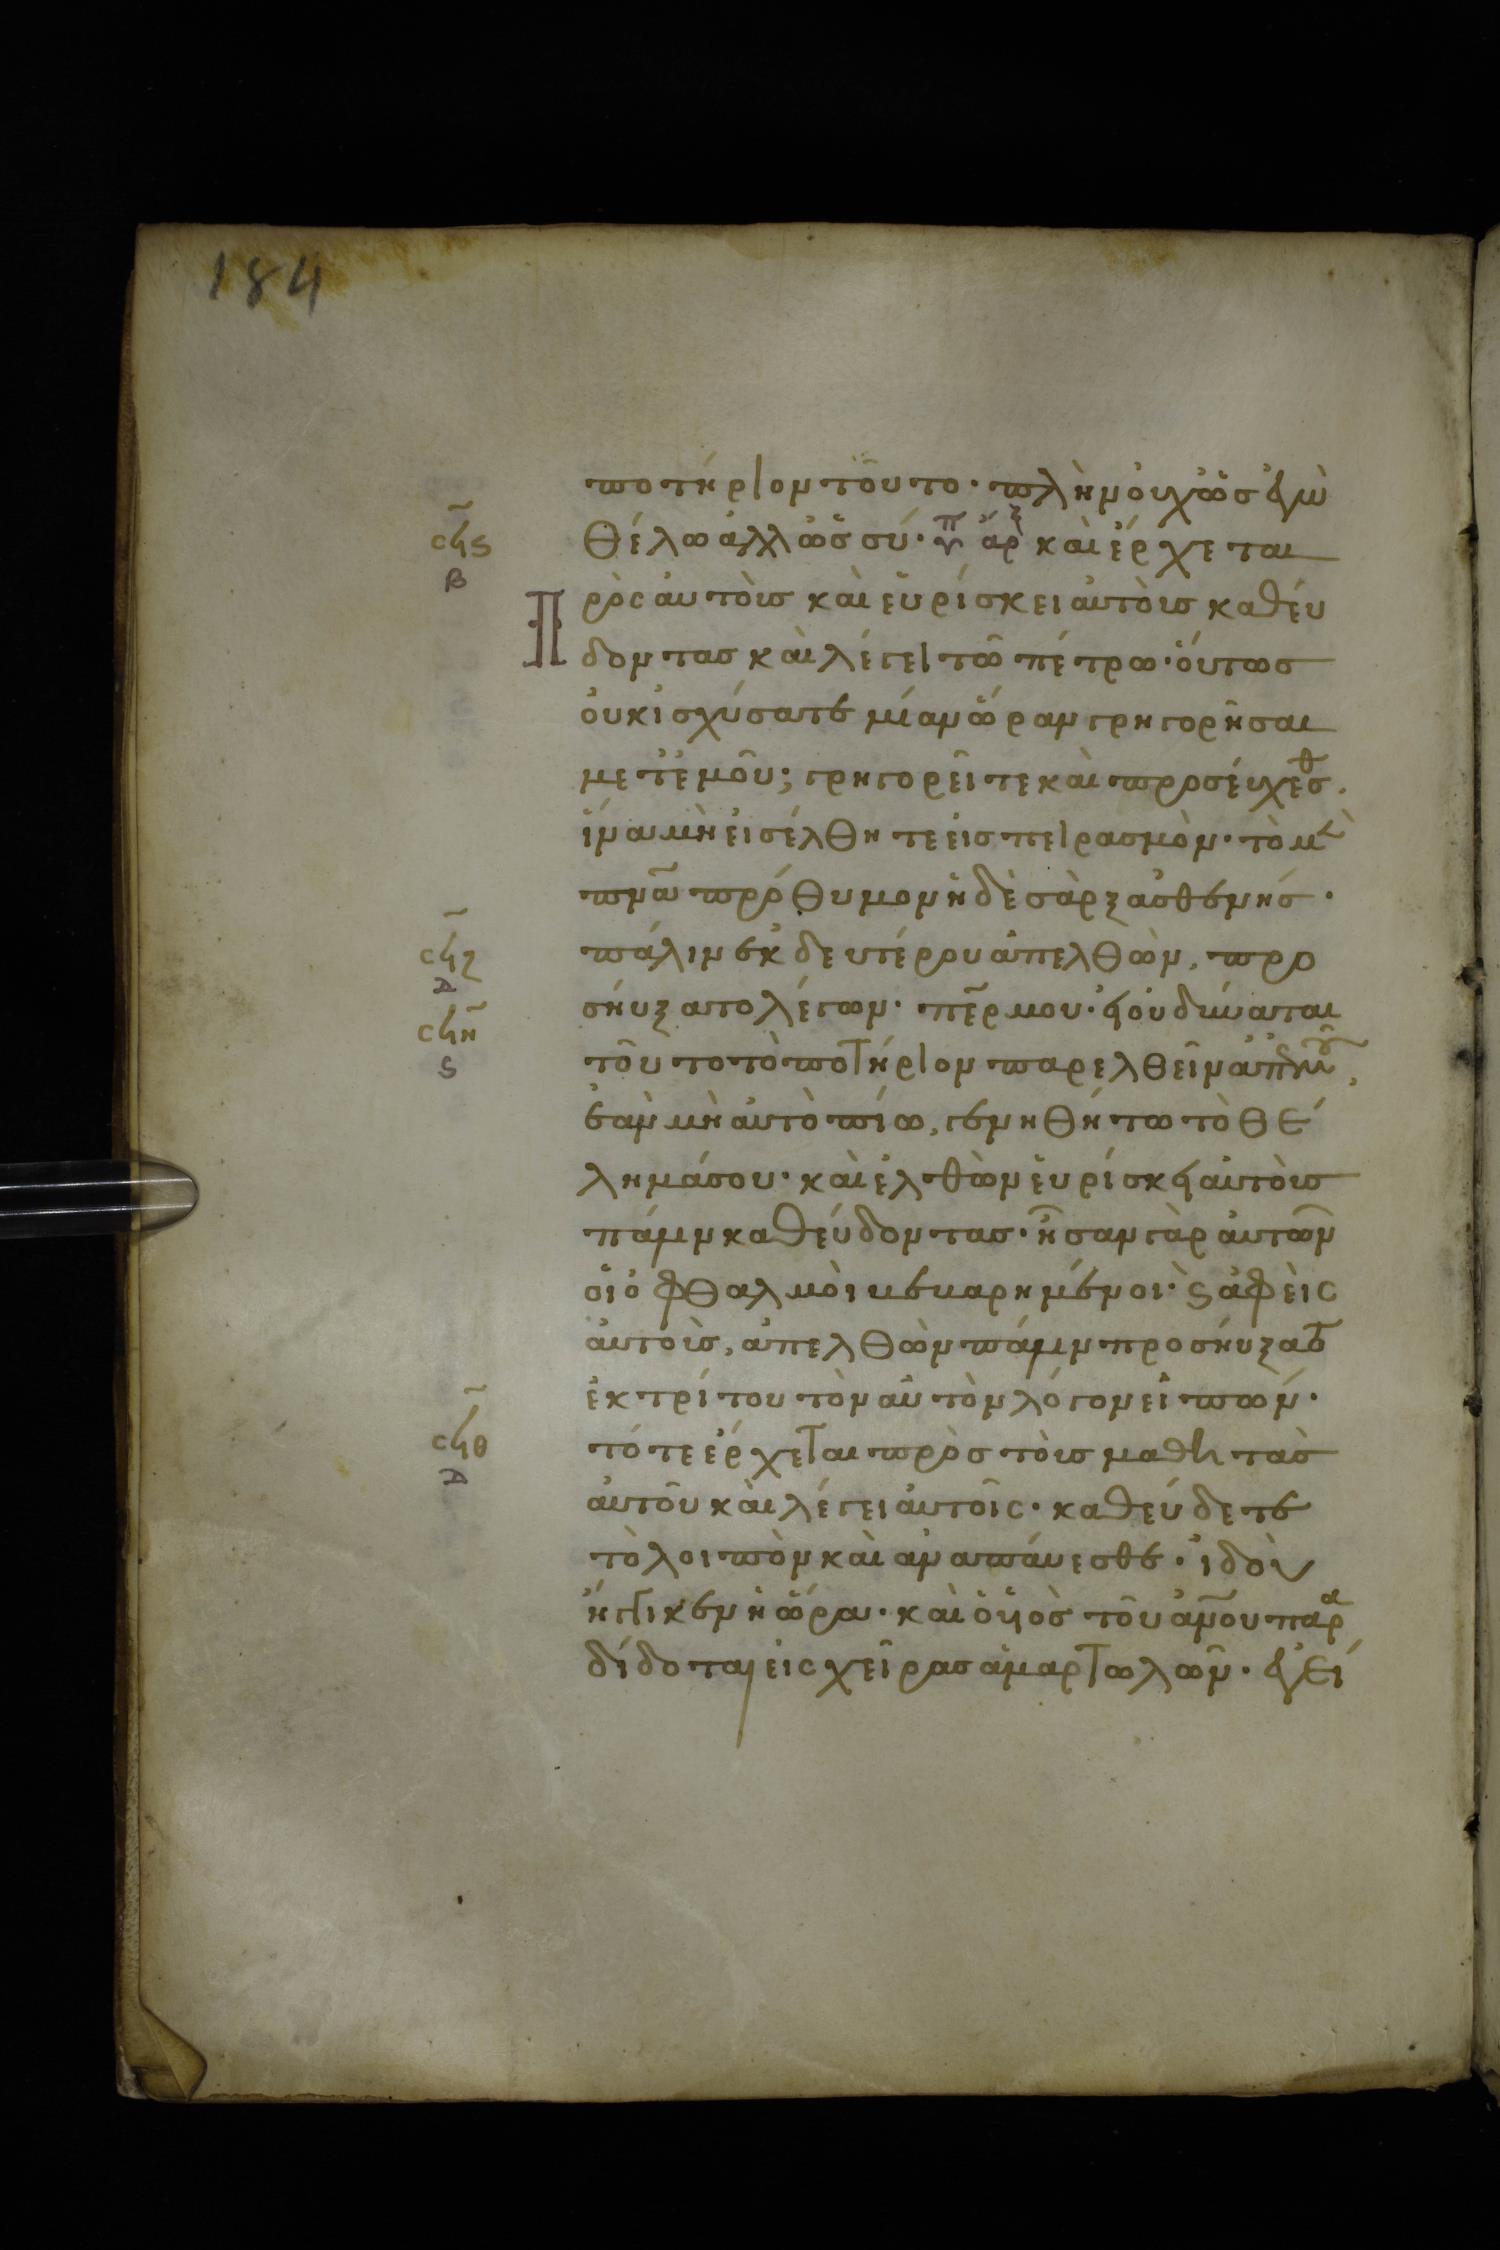 184
ποτήριον τοῦτο· πλὴν οὐχ ὡς ἐγὼ
σϟς θέλω ἀλλ ὡς σύ· ἀρχ καὶ ἔρχεται
Β
Πρὸς αὐτοὺς καὶ εὑρίσκει αὐτοὺς καθεύ
δοντας καὶ λέγει τῶ πέτρω· οὕτως
οὐκ ἰσχύσατε μίαν ὥραν γρηγορῆσαι
μετ ἐμοῦ; γρηγορεῖτε καὶ προσεύχεσθ·
ἵνα μὴ εἰσέλθητε εἰς πειρασμὸν· τὸ μὲ
πνα πρόθυμον ἡ δὲ σὰρξ ἀσθενής·
σϟζ πάλιν ἐκ δευτέρου ἀπελθὼν, προ
Δ
σηύξατο λέγων· περ μου· εἰ οὐ δύναται
σϟη
Ϛ
τοῦτο τὸ ποτήριον παρελθεῖν ἀπ ἐμοῦ,
ἐὰν μὴ αὐτὸ πίω, γενηθήτω τὸ θέ
λημά σου· καὶ ἐλθὼν εὑρίσκει αὐτοὺς
πάλιν καθεύδοντας· ἦσαν γὰρ αὐτῶν
οἱ ὀφθαλμοὶ βεβαρημένοι· ϗ ἀφεὶς
αὐτοὺς, ἀπελθὼν πάλιν προσηύξατ
ἐκ τρίτου τὸν αὐτὸν λόγον εἰπών·
σϟθ τότε ἔρχεται πρὸς τοὺς μαθητὰς
Δ
αὐτοῦ καὶ λέγει αὐτοῖς· καθεύδετε
τὸ λοιπὸν καὶ ἀναπάυεσθε· ἰδοὺ
ἤγγικεν ἡ ὥρα· καὶ ὁ υἱὸς τοῦ ἀνου παρα
δίδοται εἰς χεῖρας ἁμαρτωλῶν· ἐγεί